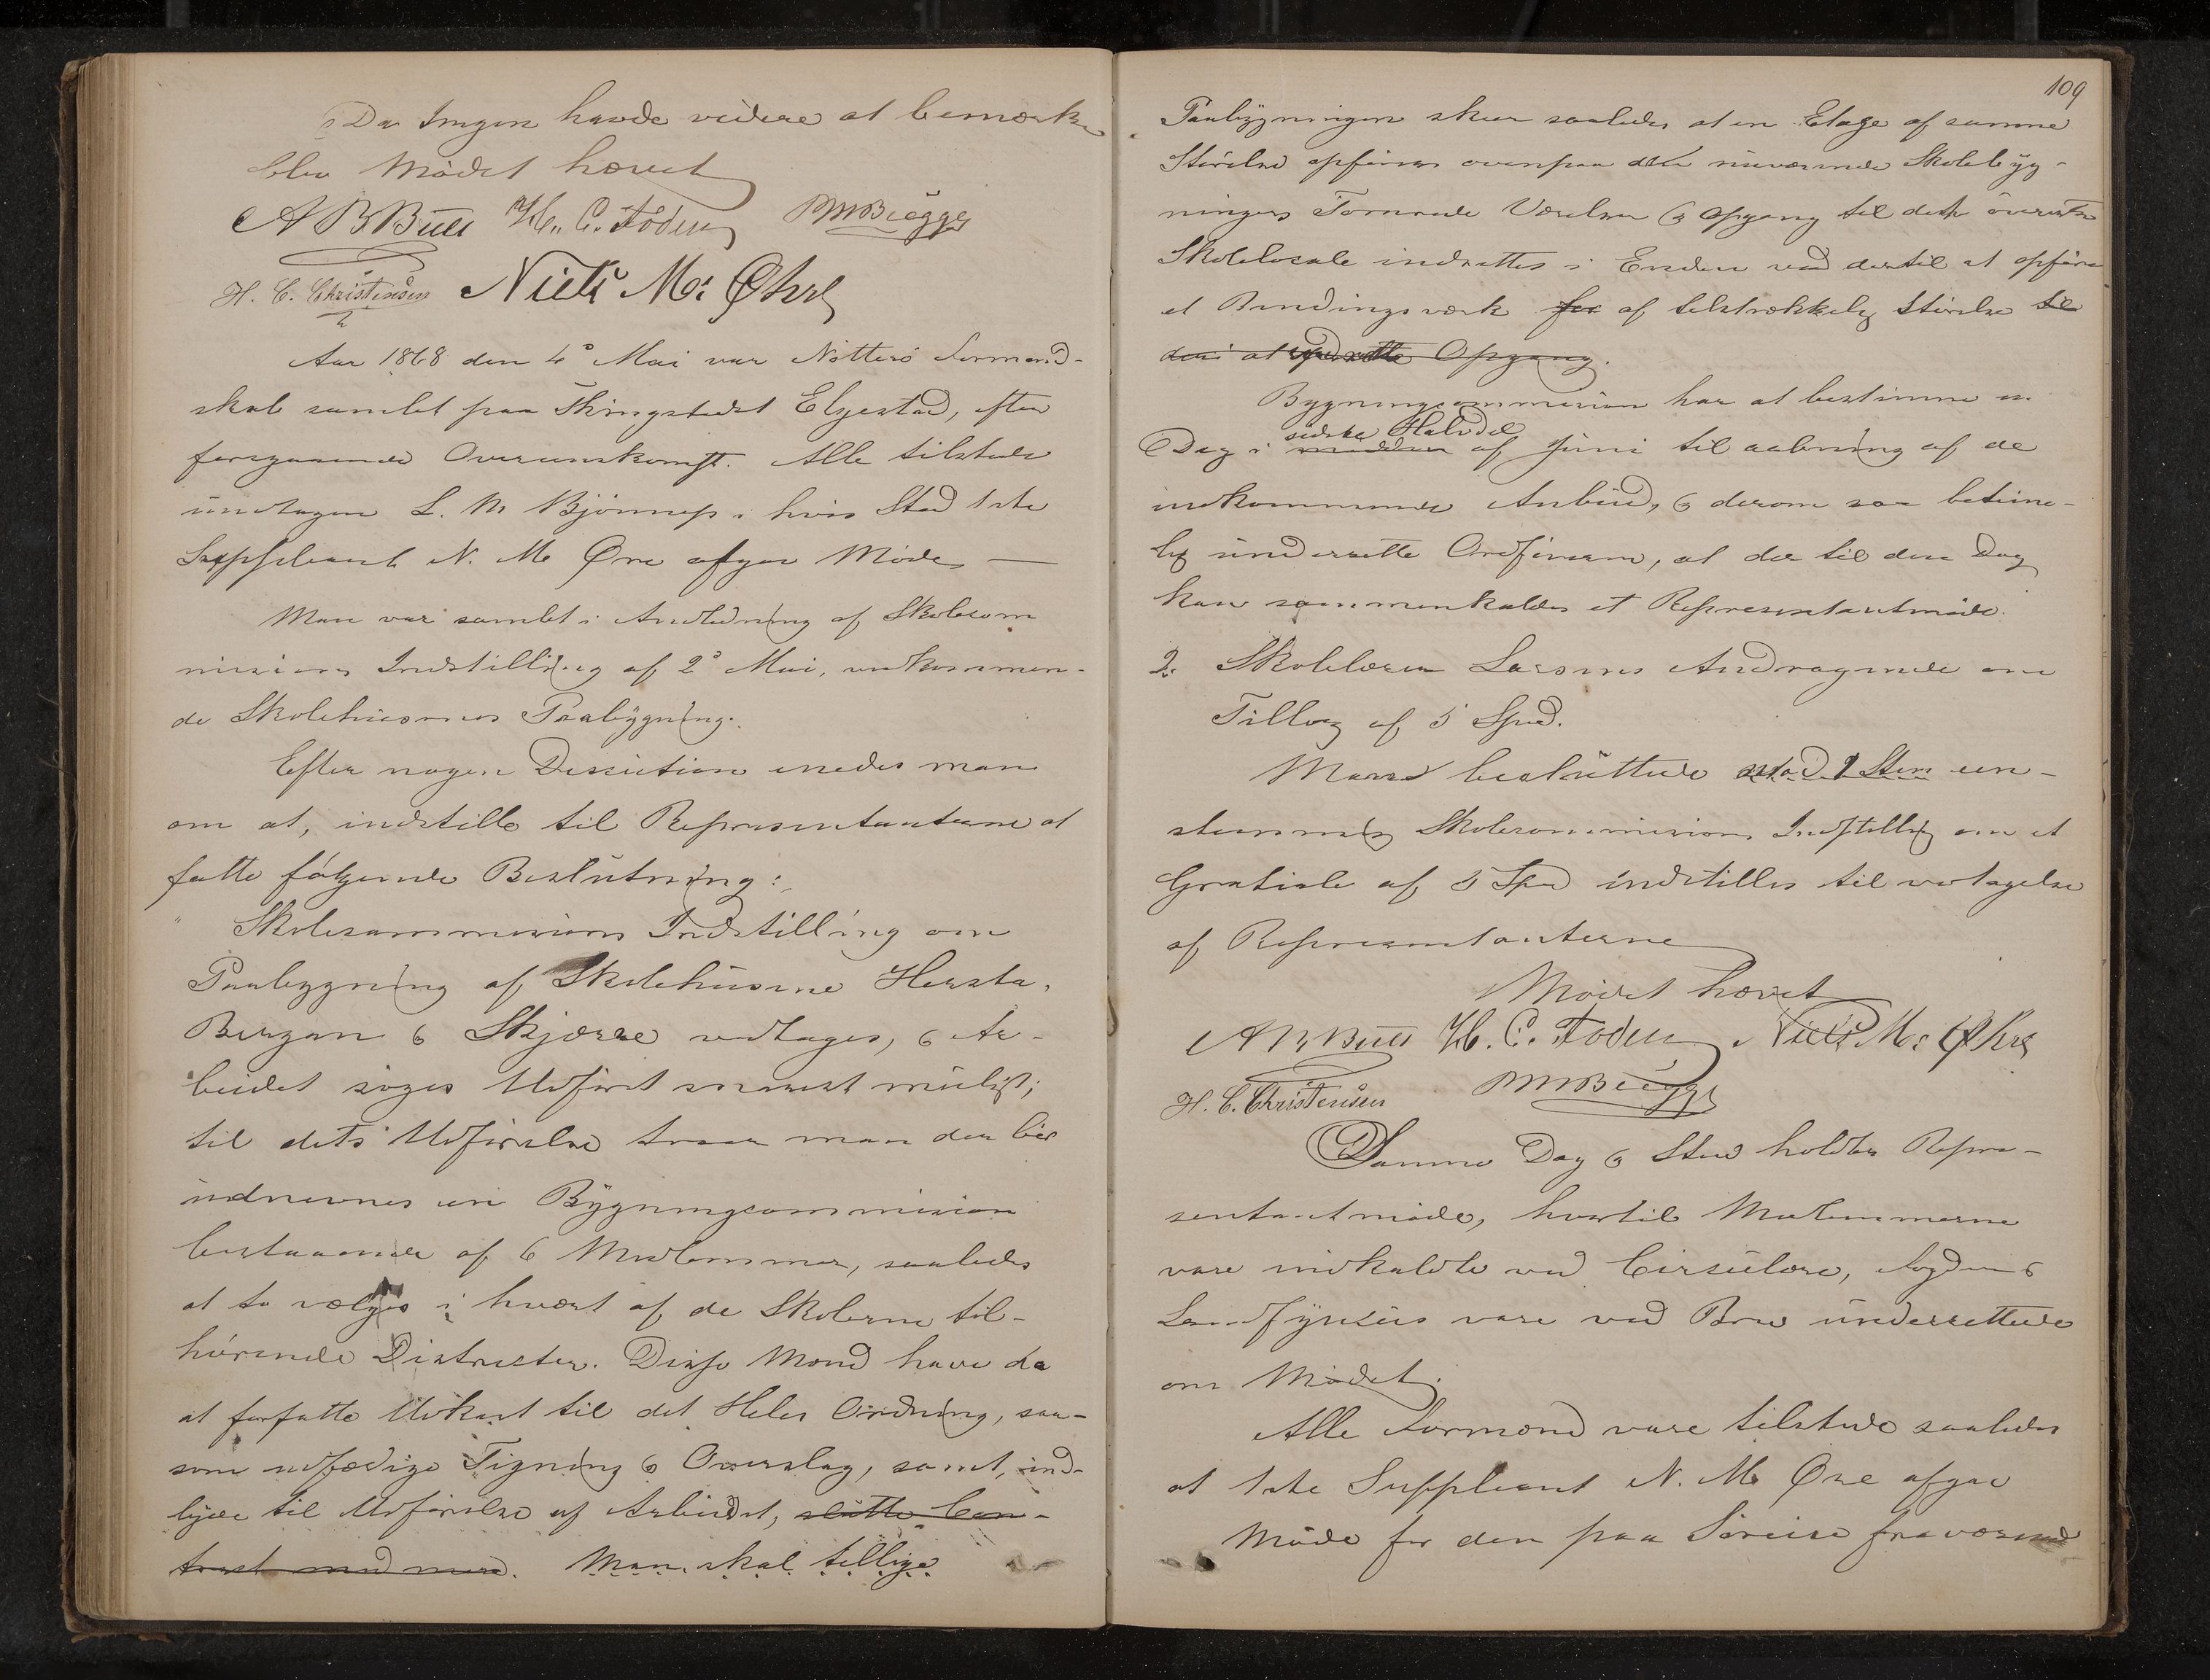 Da Ingen havde videre at bemærke
blev Mødet hævet
A B Bull H. C. Foden M Bugge
H. C. Christensen Niels M: Øhre
Aar 1868 den 4de Mai var Nøtterø Formand-
skab samlet paa Thingstedet Elgestad, efter
foregaaende Overenskomst. Alle tilstede
undtagen L. M Bjønness i hvis Sted 1ste
Suppleant N. M Øre afgav Møde —
Man var samlet i Anledning af Skolecom
missions Indstilling af 2de Mai, vedkommen-
de Skolehusenes Paabygning.
Efter nogen Discution enedes man
om at, indstille til Repræsentanterne at
fatte følgende Beslutning:
" Skolecommissions Indstilling om
Paabygning af Skolehusene Hersta,
Bergan & Skjærve vedtages, & Ar-
beidet søges Udført snarest muligt;
til dets Udførelse troer man der bør
udnevnes en Bygningcommission
bestaaende af 6 Medlemmer, saaledes
at to vælges i hvært af de Skolerne til-
hørende Districter. Disse Mænd have da
at forfatte Udkast til det Heles Ordning, saa-
som udfærdige Tigning & Overslag, samt, ind-
byde til Udførelse af Arbeidet, slutte Con-
tract med mere. Man skal tillige
109
Paabygningen skeer saaledes at en Etage af samme
Størelse opføres ovenpaa den nuværende Skolebyg-
ningers Værelser & Opgang til det øverste
Skolelocale indrettes i Enden ved dertil at opføre
et Bindingsværk for af tilstrækkelig Størelse til
deri at indrette Opgang.
Bygningcommission har at bestimme en
sidste Halvdel
Dag i midten af Juni til aabning af de
indkommende Anbud, & derom saa betime-
lig underrette Ordføreren, at der til den Dag
kan sammenkaldes et Representantmøde.
2. Skolelærer Larsens Andragende om
Tillæg af 5 Spd.
Man besluttede mod 1 Stem een-
stemmig Skolecommissions Indstillig om et
Gratiale af 5 Spd indstilles til vedtagelse
af Representanterne
Mødet hævet
A B Bull H. C. Foden Niels M: Øhre
H. C. Christensen M Bugge
Samme Dag & Sted holdtes Repre-
sentantmøde, hvortil Medlemmerne
vare indkaldte ved Circulære, Fogden &
Landfysicus vare ved Brev underrettede
om Mødet.
Alle Formænd vare tilstede saaledes
at 1ste Suppleant N. M Øre afgav
Møde for den paa Søreise fraværende